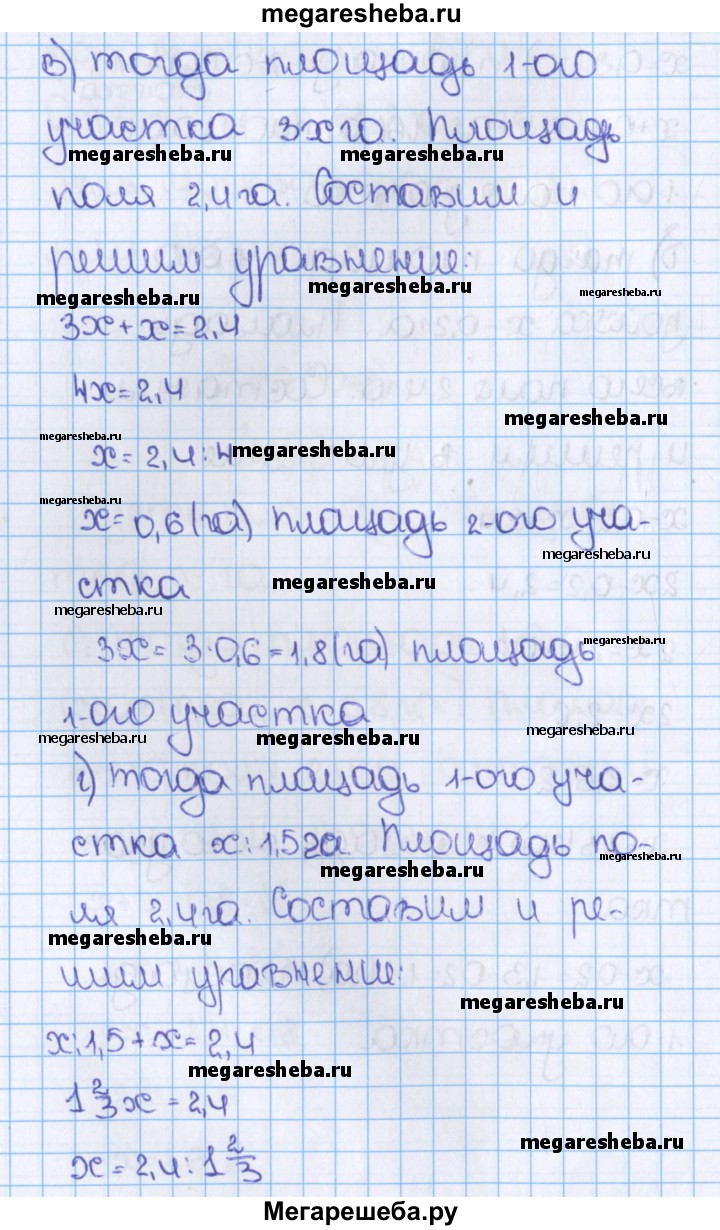 megaresheba.ru
в) тогда площадь 1-ого
участка 3x га. Площадь
megaresheba.ru megaresheba.ru
поля 2,4 га. Составим и
решим уравнение:
megaresheba.ru megaresheba.ru megaresheba.ru
3x + x = 2,4
4x = 2,4
megaresheba.ru
megaresheba.ru
x = 2,4 : 4 megaresheba.ru
megaresheba.ru
x = 0,6 (га) площадь 2-ого уча-
megaresheba.ru
стка megaresheba.ru
megaresheba.ru
3x = 3·0,6 = 1,8 (га) площадь megaresheba.ru
1-ого участка
megaresheba.ru megaresheba.ru megaresheba.ru
г) тогда площадь 1-ого уча-
стка x : 1,5 га. Площадь по-
megaresheba.ru megaresheba.ru
ля 2,4 га. Составим и ре-
megaresheba.ru
шим уравнение:
megaresheba.ru
x : 1,5 + x = 2,4
megaresheba.ru
1 2/3 x = 2,4
megaresheba.ru
x = 2,4 : 1 2/3
Мегарешеба.ру